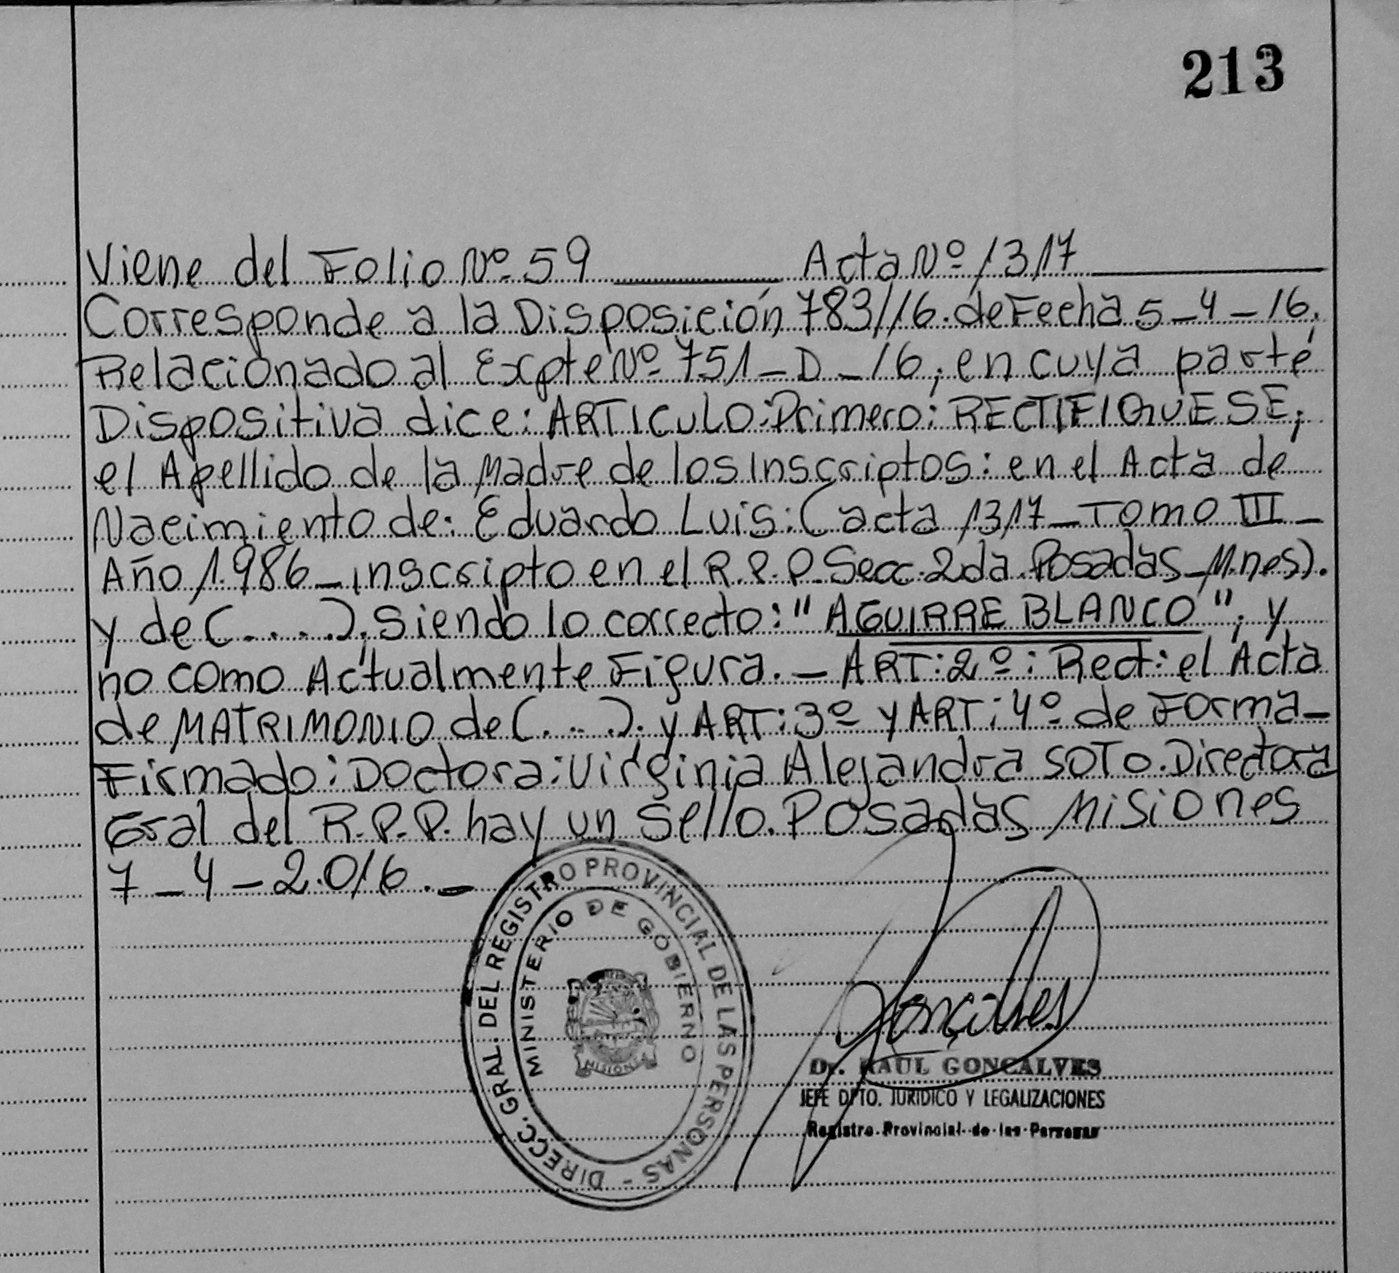 213
Viene del Folio Nº 59 ________ Acta Nº 1317 ________
Corresponde a la Disposición 783//16. de Fecha 5_4_16,
Relacionado al Expte Nº 751_D_16, en cuya parte
Dispositiva dice: ARTICULO: Primero: RECTIFIQUESE,
el Apellido de la Madre de los Inscriptos: en el Acta de
Nacimiento de: Eduardo Luis: (acta 1317_Tomo III_
Año 1.986_inscripto en el R.P.P. Secc. 2da. Posadas_M.nes).
y de (....), Siendo lo correcto: "AGUIRRE BLANCO", y
no como Actualmente Figura._ ART: 2º: Rect: el Acta
de MATRIMONIO de (...). y ART: 3º y ART: 4º de Forma_
Firmado: Doctora: Virginia Alejandra SOTO. Directora
Gral del R.P.P. hay un Sello. Posadas Misiones
7_4_2.016._
DIRECC. GRAL. DEL REGISTRO PROVINCIAL DE LAS PERSONAS -
MINISTERIO DE GOBIERNO
MISIONES
Gonçalves
Dr. RAUL GONCALVES
JEFE DPTO. JURIDICO Y LEGALIZACIONES
Registro Provincial de las Personas